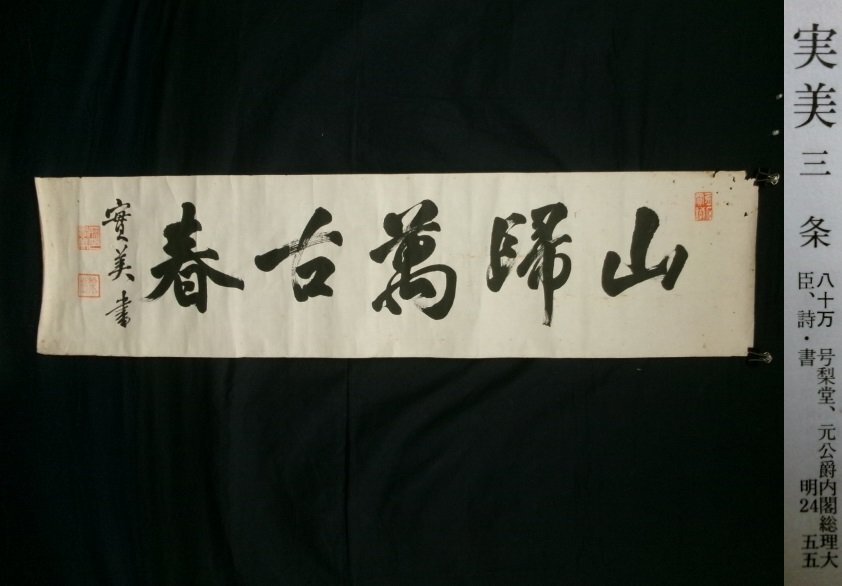 山歸萬古春
實美書
実美三条
八十万 号梨堂、元公爵内閣総理大
臣、詩・書 明24 五五